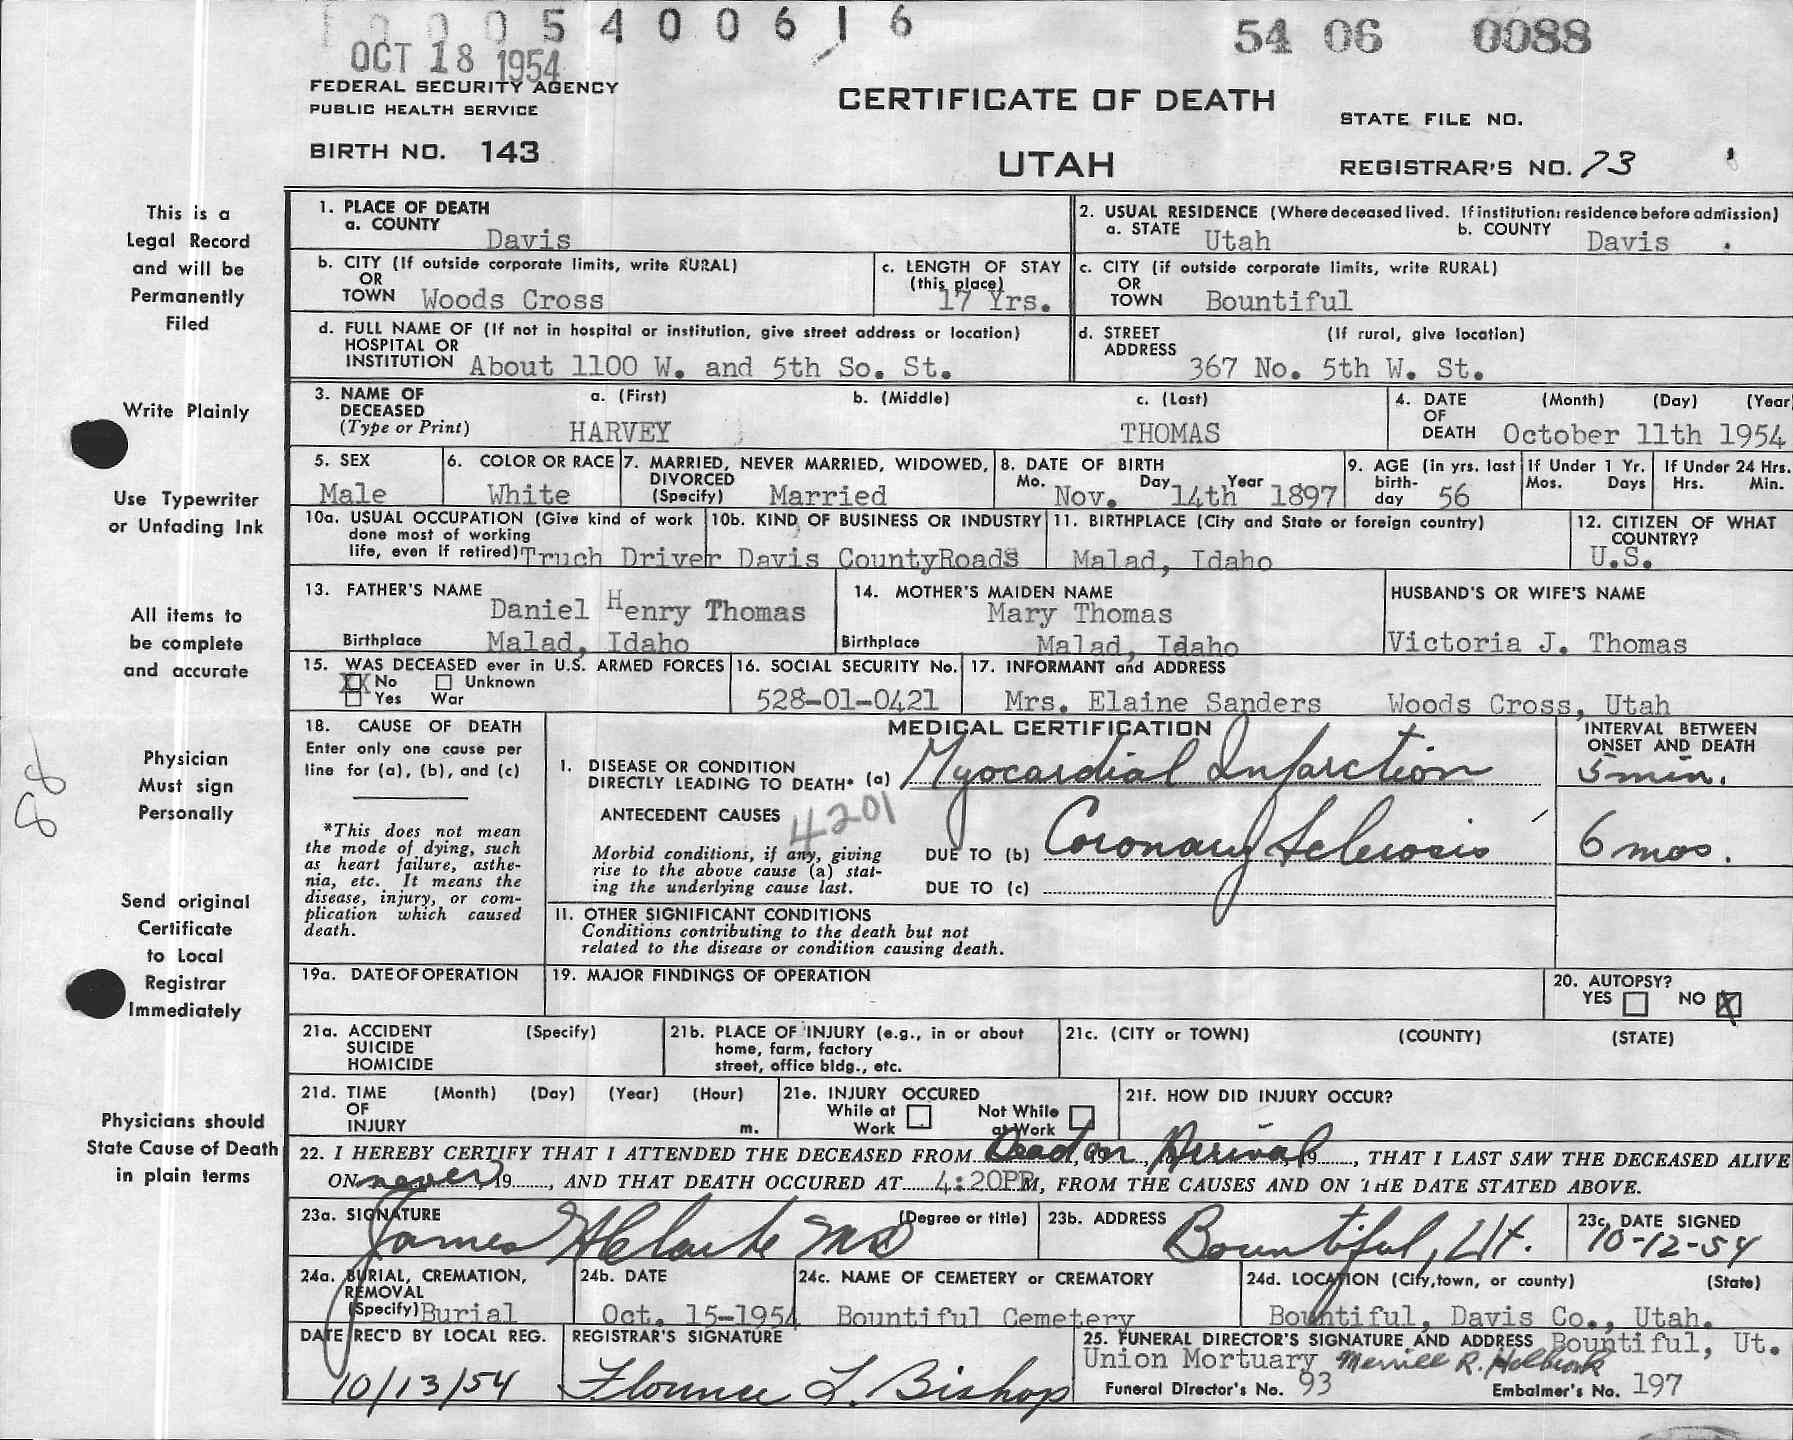 1000 5 4 0 0 6 1 6
54 06 0088
OCT 18 1954
FEDERAL SECURITY AGENCY
PUBLIC HEALTH SERVICE
BIRTH NO. 143
CERTIFICATE OF DEATH
UTAH
STATE FILE NO.
REGISTRAR'S NO. 73
This is a
Legal Record
and will be
Permanently
Filed
Write Plainly
Use Typewriter
or Unfading Ink
All items to
be complete
and accurate
Physician
Must sign
Personally
88
Send original
Certificate
to Local
Registrar
Immediately
Physicians should
State Cause of Death
in plain terms
1. PLACE OF DEATH
a. COUNTY Davis
2. USUAL RESIDENCE (Where deceased lived. If institution: residence before admission)
a. STATE Utah b. COUNTY Davis .
b. CITY (If outside corporate limits, write RURAL)
OR
TOWN Woods Cross
c. LENGTH OF STAY
(this place)
17 Yrs.
c. CITY (if outside corporate limits, write RURAL)
OR
TOWN Bountiful
d. FULL NAME OF (If not in hospital or institution, give street address or location)
HOSPITAL OR
INSTITUTION About 1100 W. and 5th So. St.
d. STREET (If rural, give location)
ADDRESS
367 No. 5th W. St.
3. NAME OF a. (First) b. (Middle) c. (Last)
DECEASED
(Type or Print) HARVEY THOMAS
4. DATE (Month) (Day) (Year
OF
DEATH October 11th 1954
5. SEX
Male
6. COLOR OR RACE
White
7. MARRIED, NEVER MARRIED, WIDOWED,
DIVORCED
(Specify) Married
8. DATE OF BIRTH
Mo. Day Year
Nov. 14th 1897
9. AGE (in yrs. last
birth-
day 56
If Under 1 Yr.
Mos. Days
If Under 24 Hrs.
Hrs. Min.
10a. USUAL OCCUPATION (Give kind of work
done most of working
life, even if retired) Truch Driver
10b. KIND OF BUSINESS OR INDUSTRY
Davis CountyRoads
11. BIRTHPLACE (City and State or foreign country)
Malad, Idaho
12. CITIZEN OF WHAT
COUNTRY?
U.S.
13. FATHER'S NAME
Daniel Henry Thomas
Birthplace Malad, Idaho
14. MOTHER'S MAIDEN NAME
Mary Thomas
Birthplace Malad, Idaho
HUSBAND'S OR WIFE'S NAME
Victoria J. Thomas
15. WAS DECEASED ever in U.S. ARMED FORCES
XX No Unknown
Yes War
16. SOCIAL SECURITY No.
528-01-0421
17. INFORMANT and ADDRESS
Mrs. Elaine Sanders Woods Cross, Utah
18. CAUSE OF DEATH
Enter only one cause per
line for (a), (b), and (c)
*This does not mean
the mode of dying, such
as heart failure, asthe-
nia, etc. It means the
disease, injury, or com-
plication which caused
death.
MEDICAL CERTIFICATION
INTERVAL BETWEEN
ONSET AND DEATH
1. DISEASE OR CONDITION
DIRECTLY LEADING TO DEATH* (a) Myocardial Infarction 5 min.
ANTECEDENT CAUSES
4201
Morbid conditions, if any, giving
rise to the above cause (a) stat-
ing the underlying cause last.
DUE TO (b) Coronary Sclerosis 6 mos.
DUE TO (c)
II. OTHER SIGNIFICANT CONDITIONS
Conditions contributing to the death but not
related to the disease or condition causing death.
19a. DATE OF OPERATION
19. MAJOR FINDINGS OF OPERATION
20. AUTOPSY?
YES NO X
21a. ACCIDENT (Specify)
SUICIDE
HOMICIDE
21b. PLACE OF INJURY (e.g., in or about
home, farm, factory
street, office bldg., etc.
21c. (CITY or TOWN) (COUNTY) (STATE)
21d. TIME (Month) (Day) (Year) (Hour)
OF
INJURY m.
21e. INJURY OCCURED
While at Work Not While at Work
21f. HOW DID INJURY OCCUR?
22. I HEREBY CERTIFY THAT I ATTENDED THE DECEASED FROM Dead on Arival, 19......, THAT I LAST SAW THE DECEASED ALIVE
ON never, 19......, AND THAT DEATH OCCURED AT 4:20PM, FROM THE CAUSES AND ON THE DATE STATED ABOVE.
23a. SIGNATURE (Degree or title)
James H Clarke MD
23b. ADDRESS
Bountiful, Ut.
23c. DATE SIGNED
10-12-54
24a. BURIAL, CREMATION,
REMOVAL
(Specify) Burial
24b. DATE
Oct. 15-1954
24c. NAME OF CEMETERY or CREMATORY
Bountiful Cemetery
24d. LOCATION (City, town, or county) (State)
Bountiful, Davis Co., Utah.
DATE REC'D BY LOCAL REG.
10/13/54
REGISTRAR'S SIGNATURE
Florence L. Bishop
25. FUNERAL DIRECTOR'S SIGNATURE AND ADDRESS Bountiful, Ut.
Union Mortuary Merrill R. Holbrook
Funeral Director's No. 93 Embalmer's No. 197